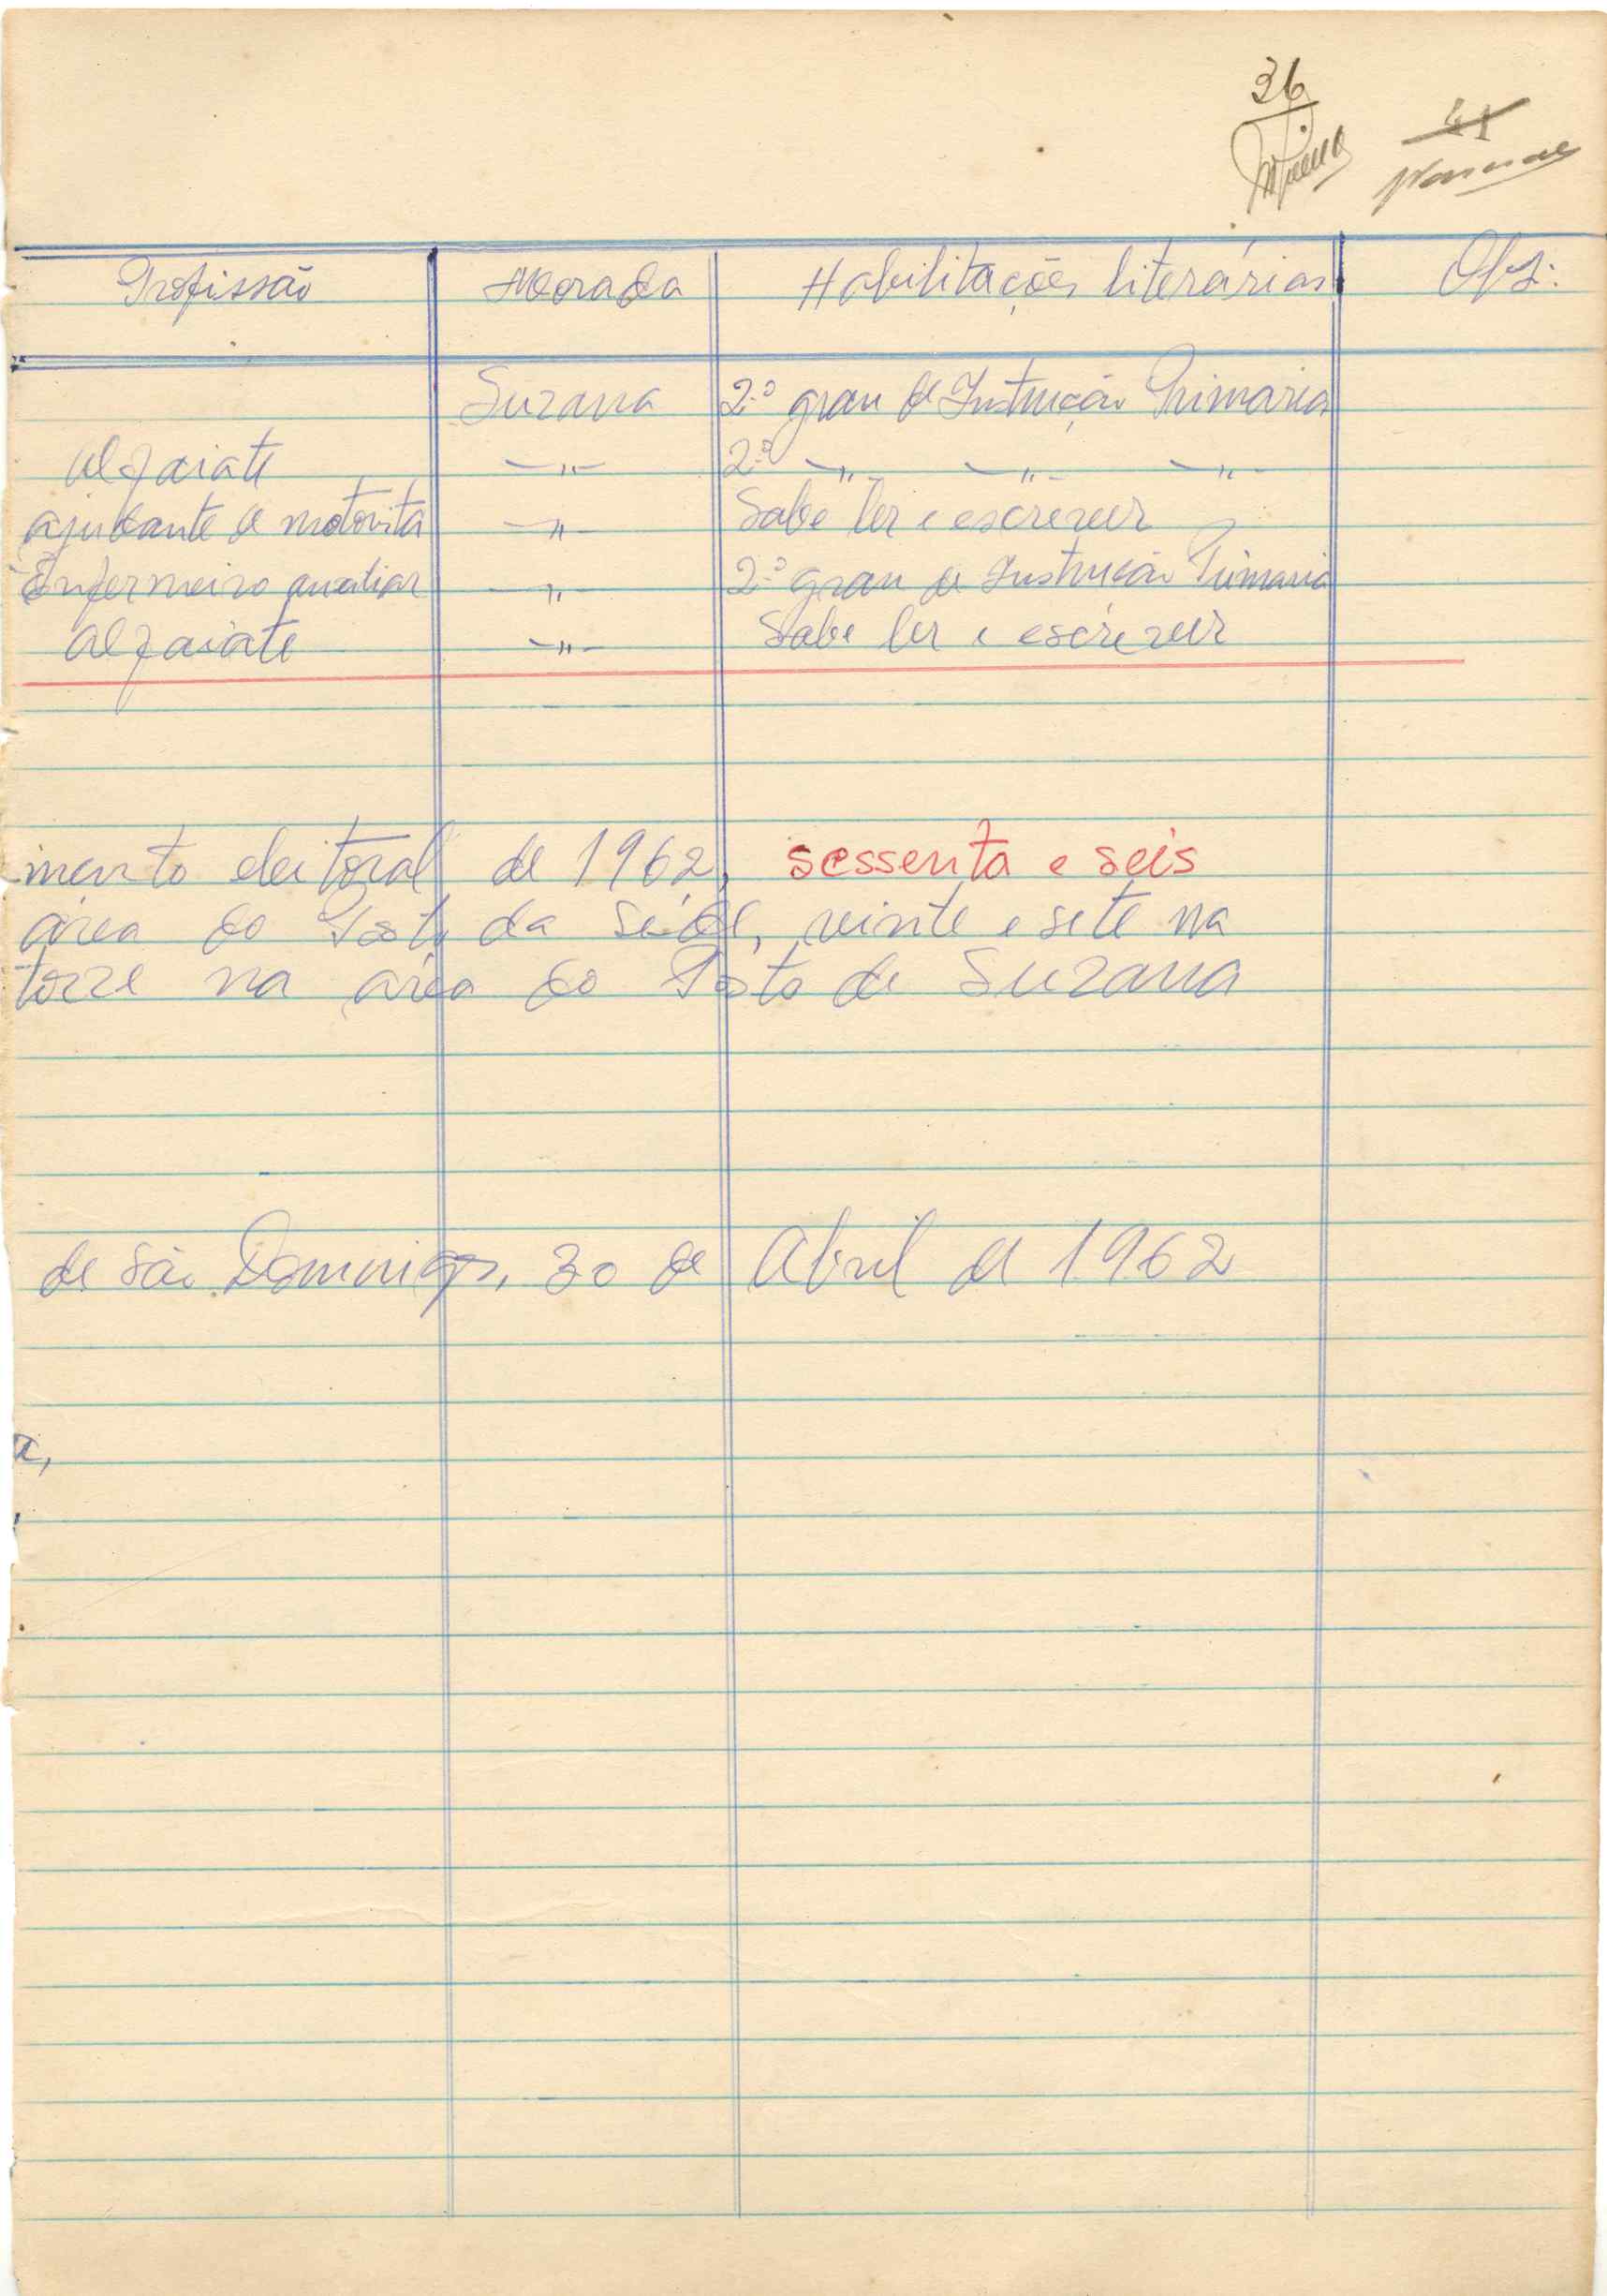 36
41
Profissão Morada Habilitações literárias Obs:
Suzana 2.º grau de Instrução Primaria
Alfaiate —"— 2.º —"— —"— —"—
ajudante de motorista —"— Sabe ler e escrever
Enfermeiro auxiliar —"— 2.º grau de Instrução Primaria
Alfaiate —"— Sabe ler e escrever
mento eleitoral de 1962, sessenta e seis
área do Posto da Séde, vinte e sete na
torze na area do Posto de Suzana
de São Domingos, 30 de Abril de 1962
a,